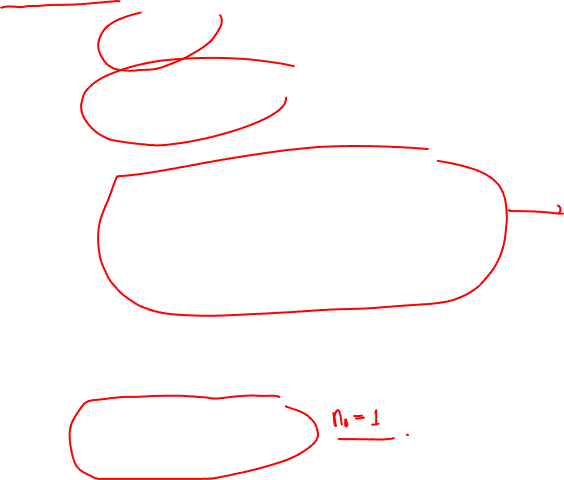 n₀ = 1